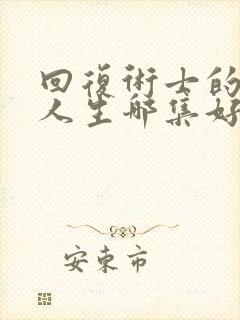 回復術士的
人生哪集好
安東市